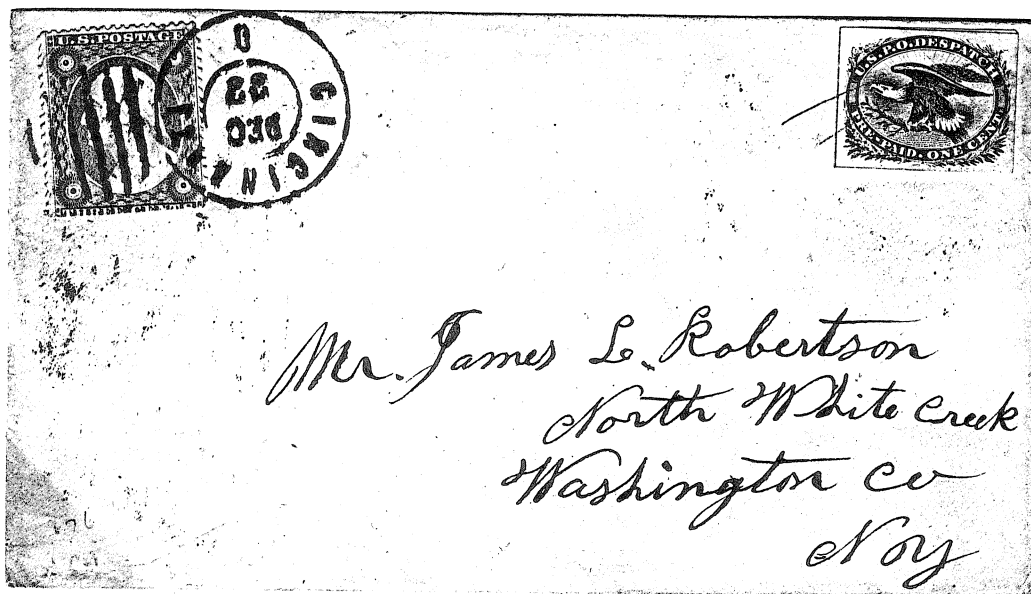 U.S. POSTAGE
CINCINNATI
O
DEC
22
U.S.P.O. DESPATCH
PRE-PAID. ONE CENT
Mr. James L. Robertson
North White Creek
Washington Co
N Y